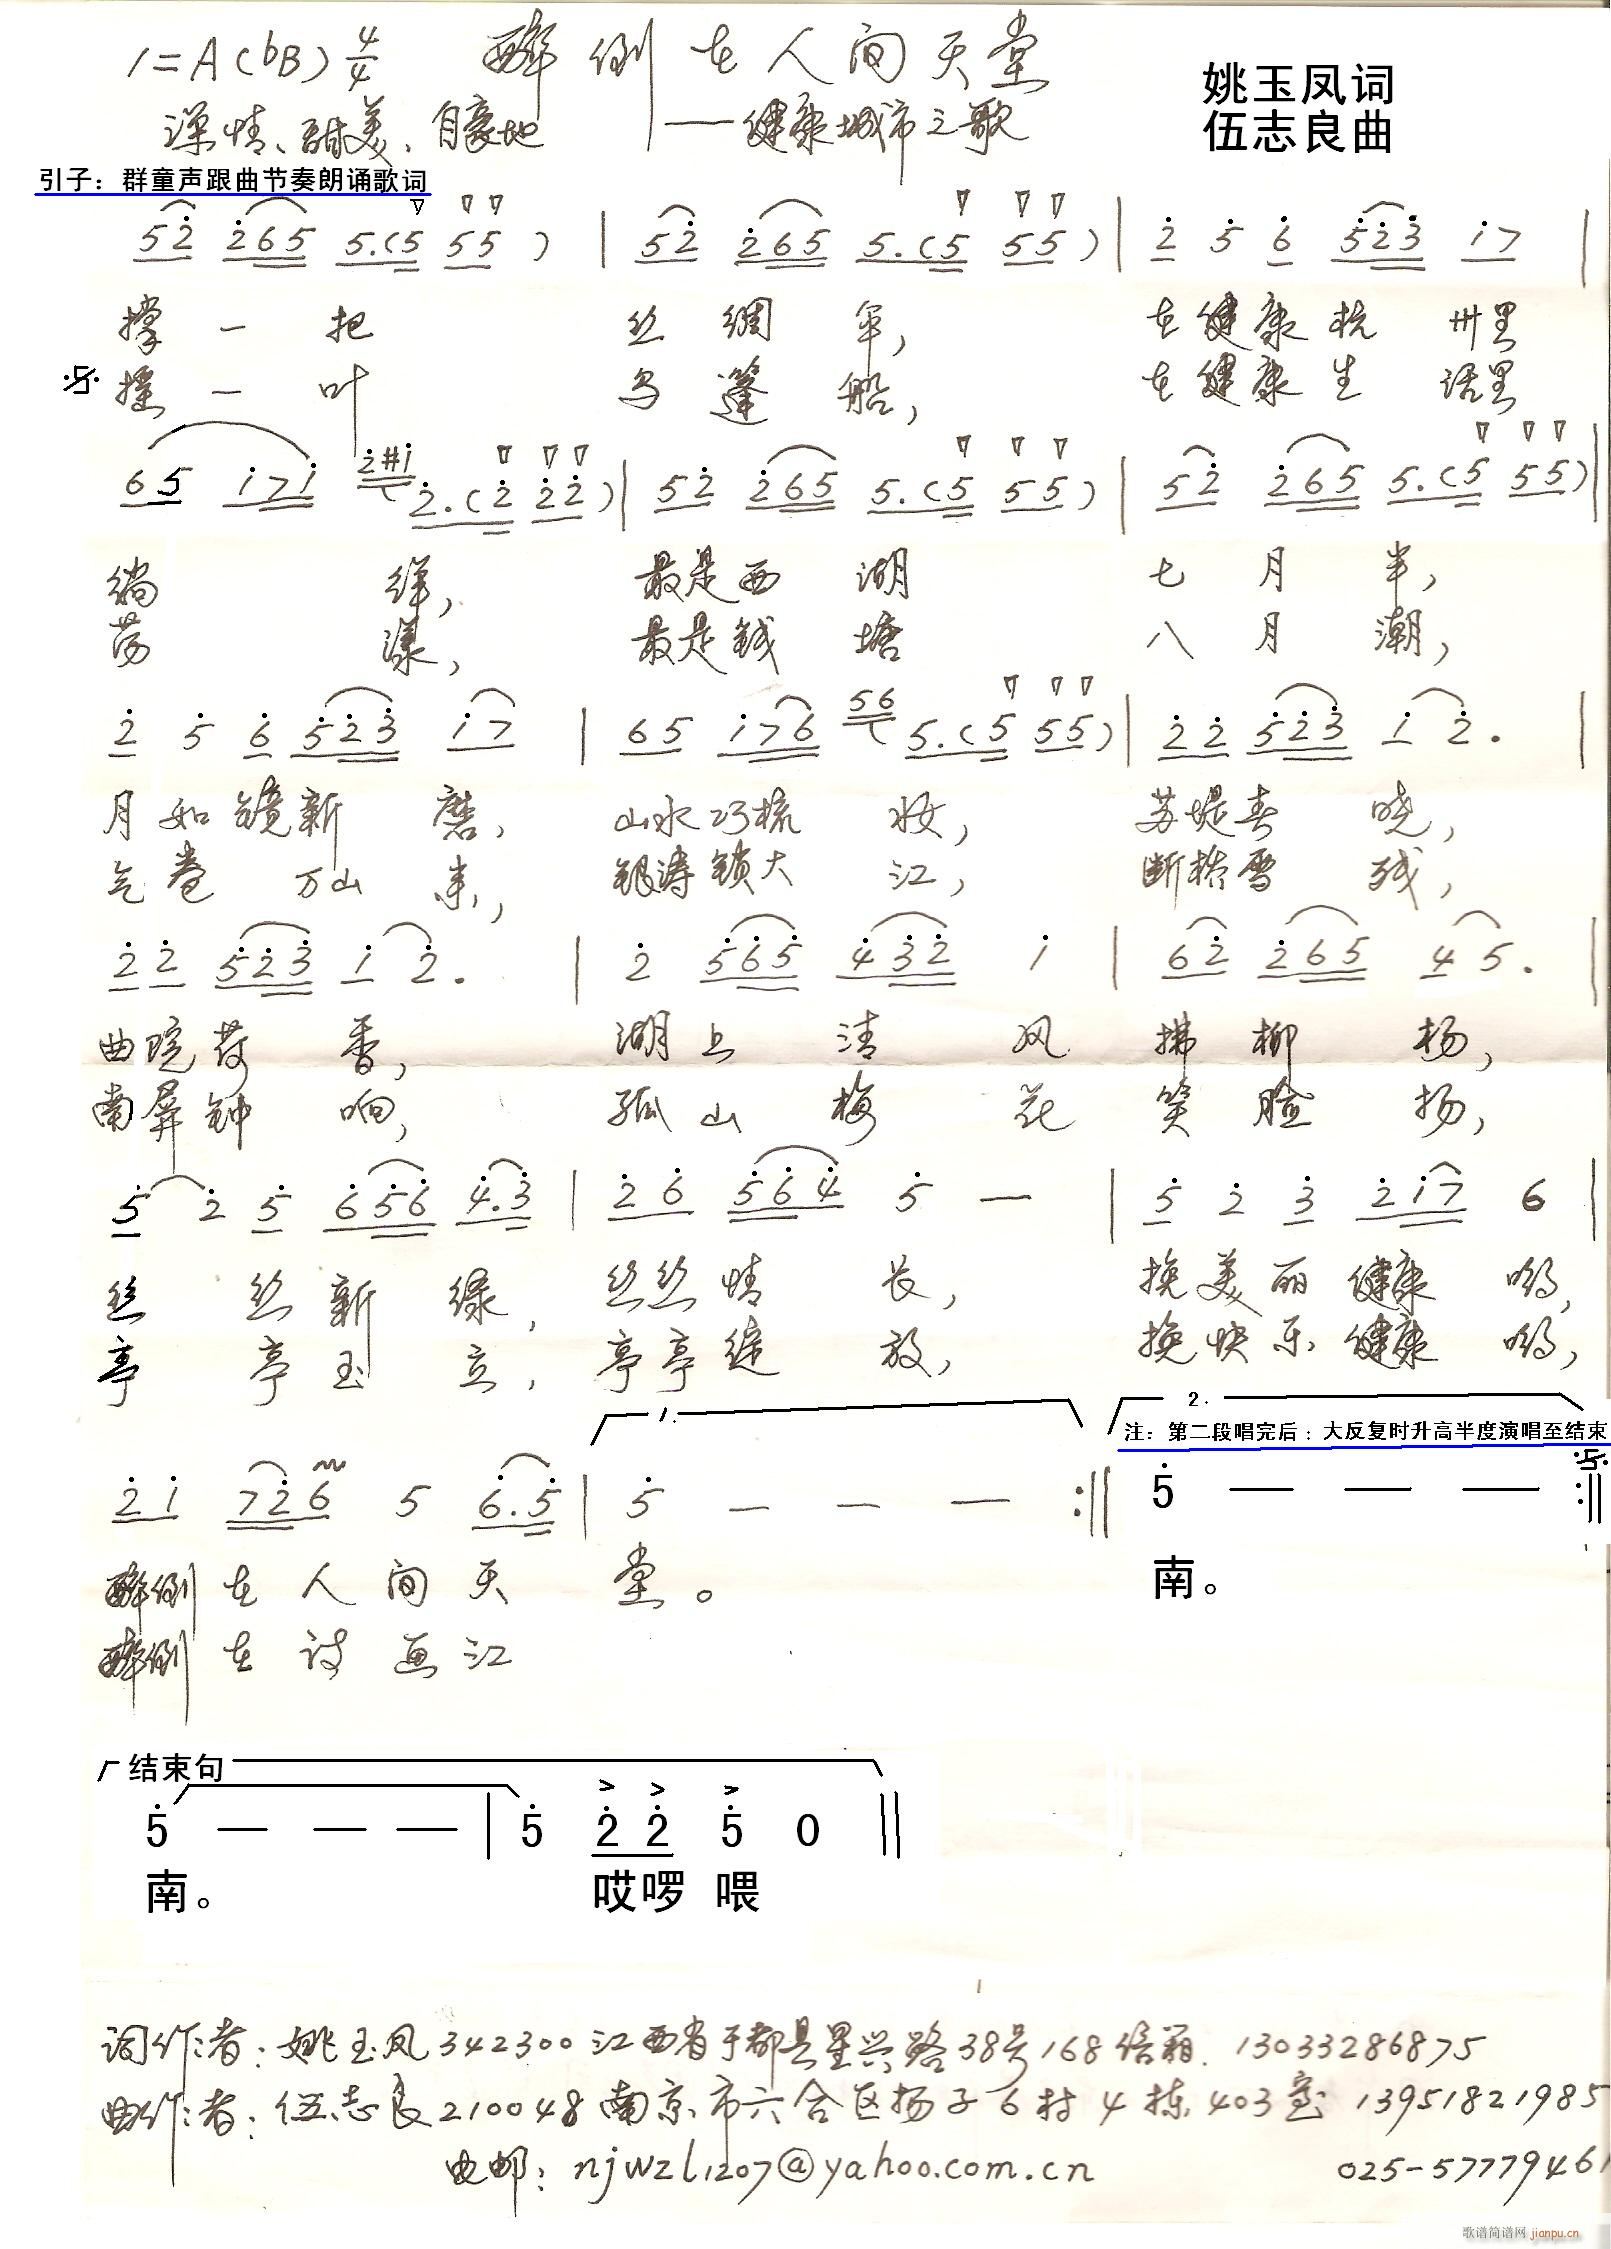 1=A(bB) 4/4 醉倒在人间天堂
姚玉凤词
深情、甜美、自豪地 ——健康城市之歌
伍志良曲
引子：群童声跟曲节奏朗诵歌词
52 265 5.(5 55) | 52 265 5.(5 55) | 2 5 6 523 17 |
撑一把 丝绸伞, 在健康杭州里
摇一叶 乌篷船, 在健康生活里
65 171 2#1 2.(2 22) | 52 265 5.(5 55) | 52 265 5.(5 55) |
徜徉, 最是西湖 七月半,
荡漾, 最是钱塘 八月潮,
2 5 6 523 17 | 65 176 56 5.(5 55) | 22 523 1 2. |
月如镜新磨, 山水巧梳妆, 苏堤春晓,
气卷万山来, 银涛锁大江, 断桥雪残,
22 523 1 2. | 2 565 432 1 | 62 265 4 5. |
曲院荷香, 湖上清风 拂柳杨,
南屏钟响, 孤山梅花 笑脸扬,
5 2 5 656 4.3 | 26 564 5 — | 5 2 3 217 6 |
丝丝新绿, 丝丝情长, 挽美丽健康哟,
亭亭玉立, 亭亭绽放, 挽快乐健康哟,
1. 2.
注：第二段唱完后：大反复时升高半度演唱至结束
21 726 5 6.5 | 5 — — — :‖ 5 — — — :‖
醉倒在人间天 堂。 南。
醉倒在诗画江
结束句
5 — — — | 5 22 5 0 ‖
南。 哎啰 喂
词作者：姚玉凤 342300 江西省于都县星兴路38号168信箱. 13033286875
曲作者：伍志良 210048 南京市六合区扬子六村4栋403室 13951821985
电邮：njwzl1207@yahoo.com.cn 025-57779461
歌谱简谱网 jianpu.cn